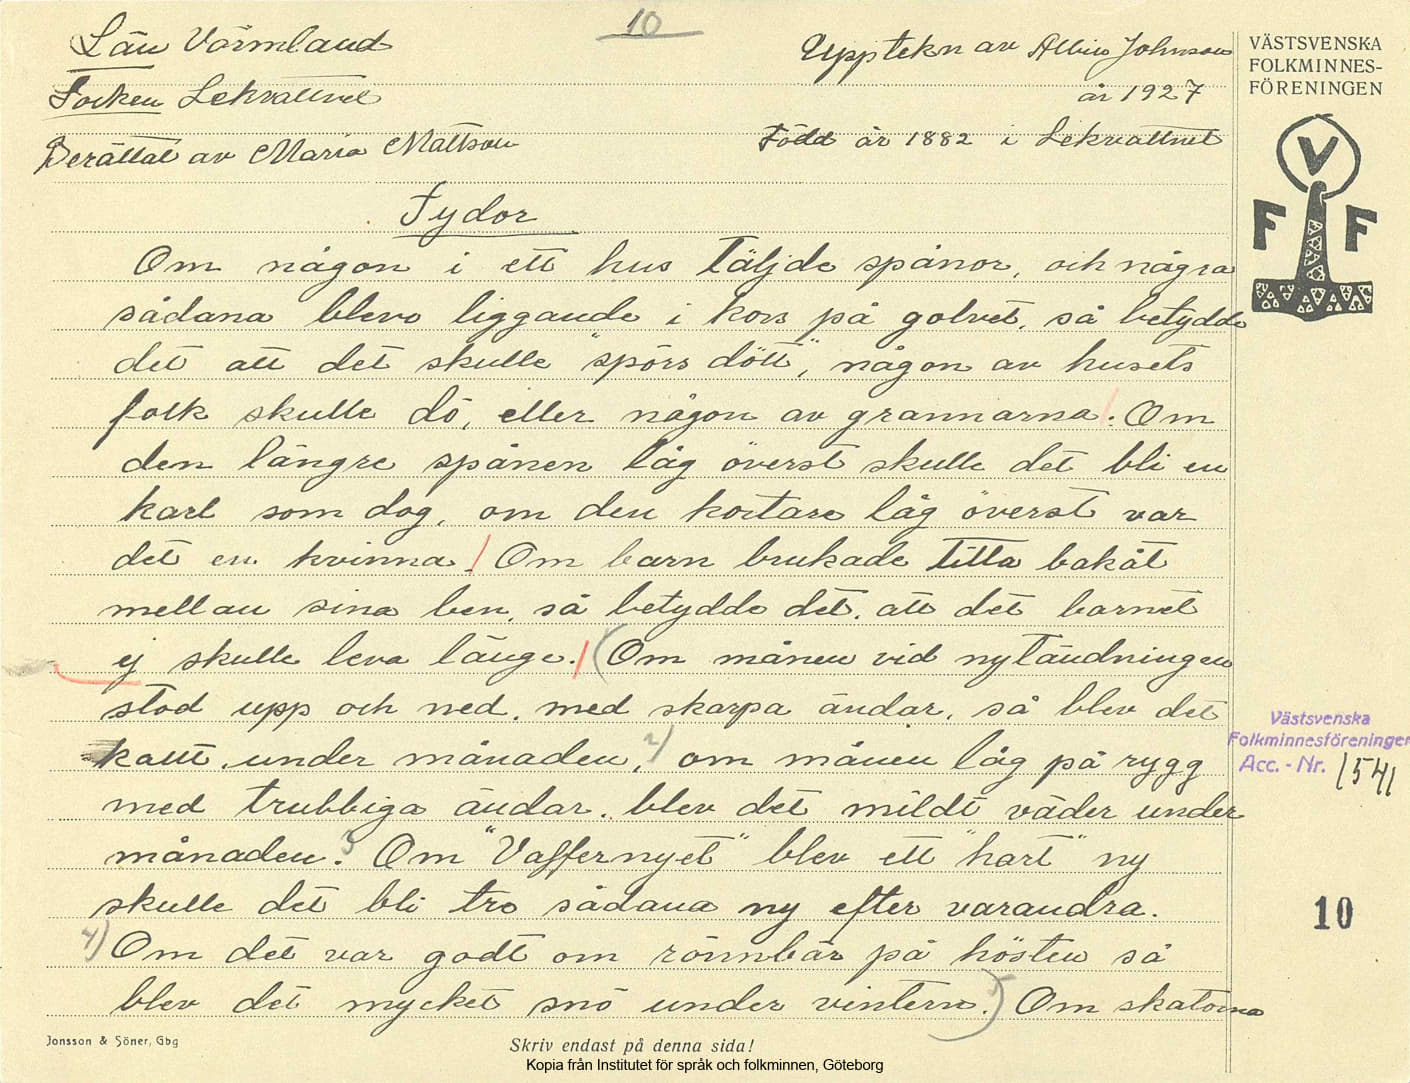 10
Län Värmland
Upptekn av Albin Johnson
VÄSTSVENSKA
FOLKMINNES-
FÖRENINGEN
Socken Lekvattnet
år 1927
Berättat av Maria Mattson
Född år 1882 i Lekvattnet
V
F F
Tydor
Om någon i ett hus täljde spånor, och några
sådana blevo liggande i kors på golvet, så betydde
det att det skulle "spörs dött", någon av husets
folk skulle dö, eller någon av grannarna. Om
den längre spånen låg överst skulle det bli en
karl som dog, om den kortare låg överst var
det en kvinna. Om barn brukade titta bakåt
mellan sina ben, så betydde det, att det barnet
ej skulle leva länge. (Om månen vid nytändningen
stod upp och ned, med skarpa ändar, så blev det
kallt under månaden, 2) om månen låg på rygg
med trubbiga ändar, blev det mildt väder under
månaden. 3 Om "Vaffernyet" blev ett "hart" ny
skulle det bli tre sådana ny efter varandra.
4) Om det var godt om rönnbär på hösten så
blev det mycket snö under vintern.) Om skatorna
Västsvenska
Folkminnesföreningen
Acc. - Nr. 1541
10
Jonsson & Söner, Gbg
Skriv endast på denna sida!
Kopia från Institutet för språk och folkminnen, Göteborg